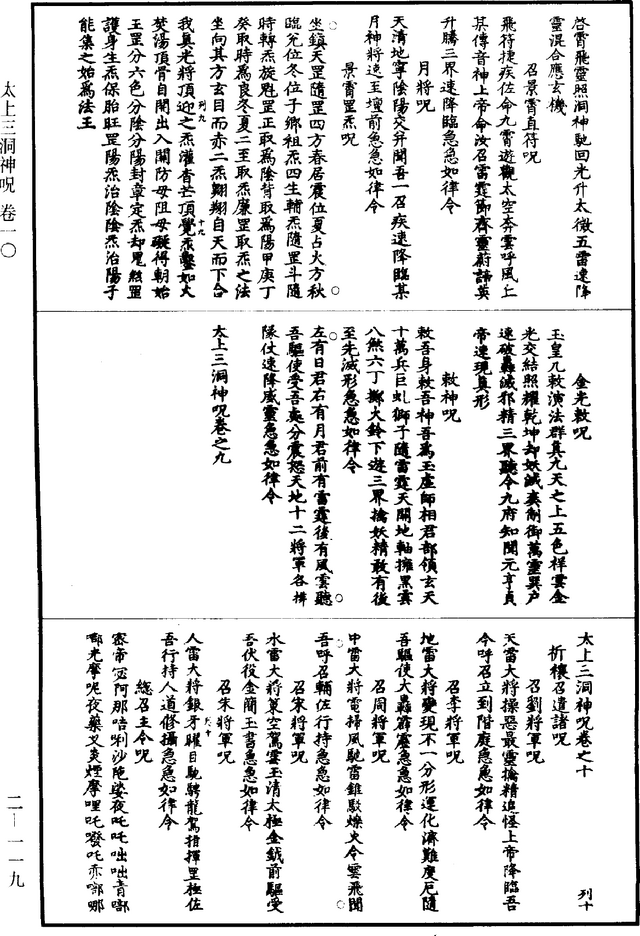 啓霄飛靈照洞神馳回光升太微五雷速降
靈混合應玄機
召景霄直符呪
飛符捷疾佐命九霄遊觀太空奔雲呼風上
其傳音神上帝命汝召雷霆節齊靈蔚諦英
升騰三界速降臨急急如律令
月將呪
天清地寧陰陽交升聞吾一召疾速降臨某
月神將速至壇前急急如律令
景霄罡炁呪
坐鎮天罡隨罡四方春居震位夏占火方秋
臨兌位冬位子鄉祖炁四生輔炁隨罡斗隨
時轉炁旋魁罡正取為陰背取為陽甲庚丁
癸取時為良冬夏二至取炁廉罡取炁之法
坐向其方玄目而赤二炁翺翔自天而下合
我真光將頂迎之炁灌香芒頂覺炁鑿如大
焚湯頂骨自開出入開防毋阻毋礙得朝始
玉罡分六色分陰分陽封章定炁却鬼煞罡
護身生炁保胎旺罡陽炁治陰陰炁治陽子
能集之始為法王
列九
十九
太上三洞神呪 卷一〇
金光敕呪
玉皇几敕演法群真九天之上五色祥雲金
光交結照耀乾坤却妖滅
制御萬靈巽户
速破轟滅邪精三界聽令九府知聞元亨貞
帝速現真形
敕神呪
敕吾身敕吾神吾為玉虛師相君部領玄天
十萬兵巨虬獅子隨雷霆天關地軸擁黑雲
八煞六丁擲火鈴下遊三界擒妖精敢有後
至先滅形急急如律令
左有日君右有月君前有雷霆後有風雲聽
吾驅使受吾
分震怒天地十二將軍各揖
隊仗速降威靈急急如律令
太上三洞神呪卷之九
太上三洞神呪卷之十
列十
祈禳召遣諸呪
召劉將軍呪
天雷大將操惡最靈擒精追怪上帝降臨吾
今呼召立到階庭急急如律令
召李將軍呪
地雷大將變現不一分形運化濟難度厄隨
吾驅使大轟霹靂急急如律令
召周將軍呪
中雷大將電掃風馳雷錐駁爍火令雲飛聞
吾呼召輔佐行持急急如律令
召宋將軍呪
水雷大將策空駕雲玉清太極金鉞前驅受
吾伏役金簡玉書急急如律令
召朱將軍呪
人雷大將銀牙曜目馳騁龍駕指揮罡極佐
吾行持人道修攝急急如律令
總召主令呪
唵帝
阿那唔唎沙陁娑夜吒吒咄咄音啷
啷光摩呢夜藥叉炎煙摩哩吒
吒赤啷哪
二—一一九